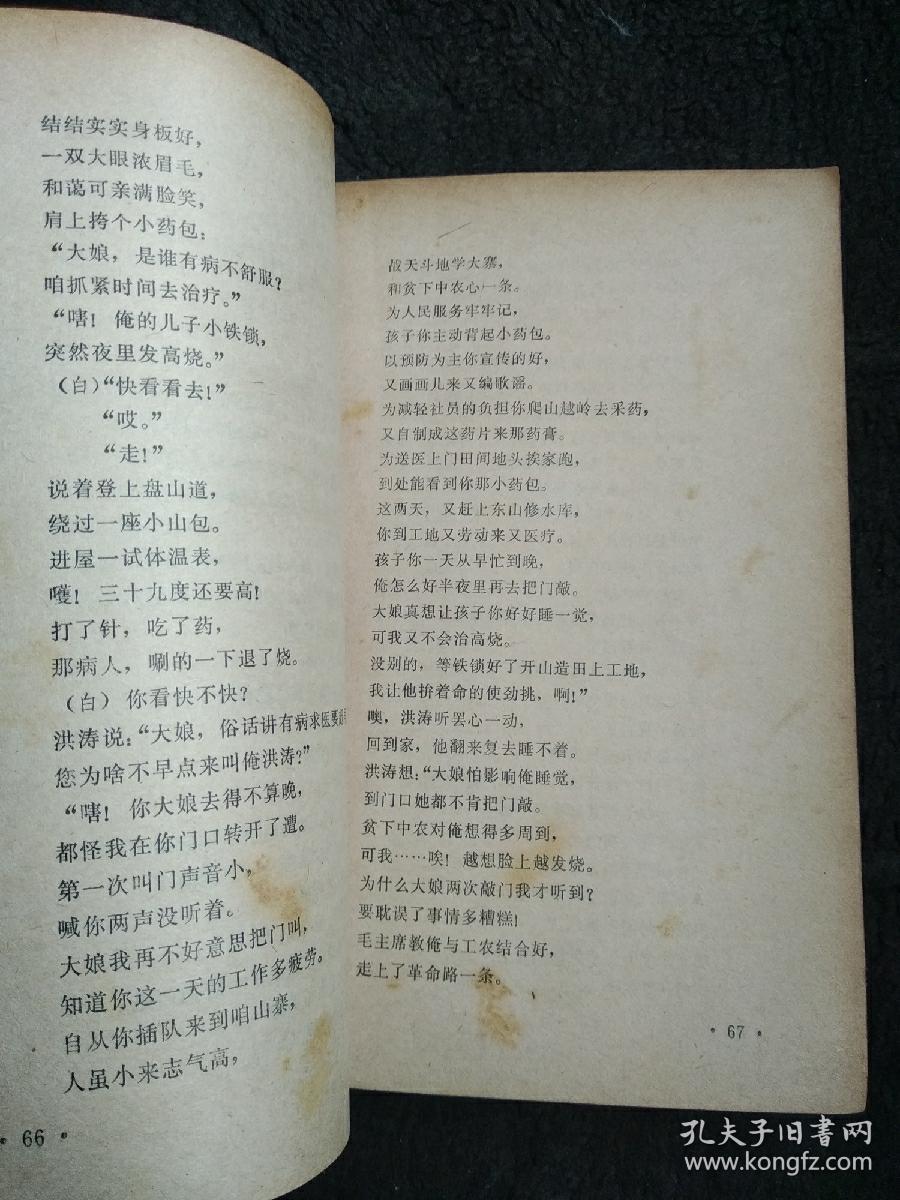 结结实实身板好，
一双大眼浓眉毛，
和蔼可亲满脸笑，
肩上挎个小药包：
“大娘，是谁有病不舒服？
咱抓紧时间去治疗。”
“嗐！俺的儿子小铁锁，
突然夜里发高烧。”
（白）“快看看去！”
“哎。”
“走！”
说着登上盘山道，
绕过一座小山包。
进屋一试体温表，
嚄！三十九度还要高！
打了针，吃了药，
那病人，唰的一下退了烧。
（白）你看快不快？
洪涛说：“大娘，俗话讲有病求医要
您为啥不早点来叫俺洪涛？”
“嗐！你大娘去得不算晚，
都怪我在你门口转开了遭。
第一次叫门声音小，
喊你两声没听着。
大娘我再不好意思把门叫，
知道你这一天的工作多疲劳。
自从你插队来到咱山寨，
人虽小来志气高，
• 66 •
战天斗地学大寨，
和贫下中农心一条。
为人民服务牢牢记，
孩子你主动背起小药包。
以预防为主你宣传的好，
又画画儿来又编歌谣。
为减轻社员的负担你爬山越岭去采药，
又自制成这药片来那药膏。
为送医上门田间地头挨家跑，
到处能看到你那小药包。
这两天，又赶上东山修水库，
你到工地又劳动来又医疗。
孩子你一天从早忙到晚，
俺怎么好半夜里再去把门敲。
大娘真想让孩子你好好睡一觉，
可我又不会治高烧。
没别的，等铁锁好了开山造田上工地，
我让他拚着命的使劲挑，啊！”
噢，洪涛听罢心一动，
回到家，他翻来复去睡不着。
洪涛想：“大娘怕影响俺睡觉，
到门口她都不肯把门敲。
贫下中农对俺想得多周到，
可我……唉！越想脸上越发烧。
为什么大娘两次敲门我才听到？
要耽误了事情多糟糕！
毛主席教俺与工农结合好，
走上了革命路一条。
• 67 •
孔夫子旧书网
www.kongfz.com